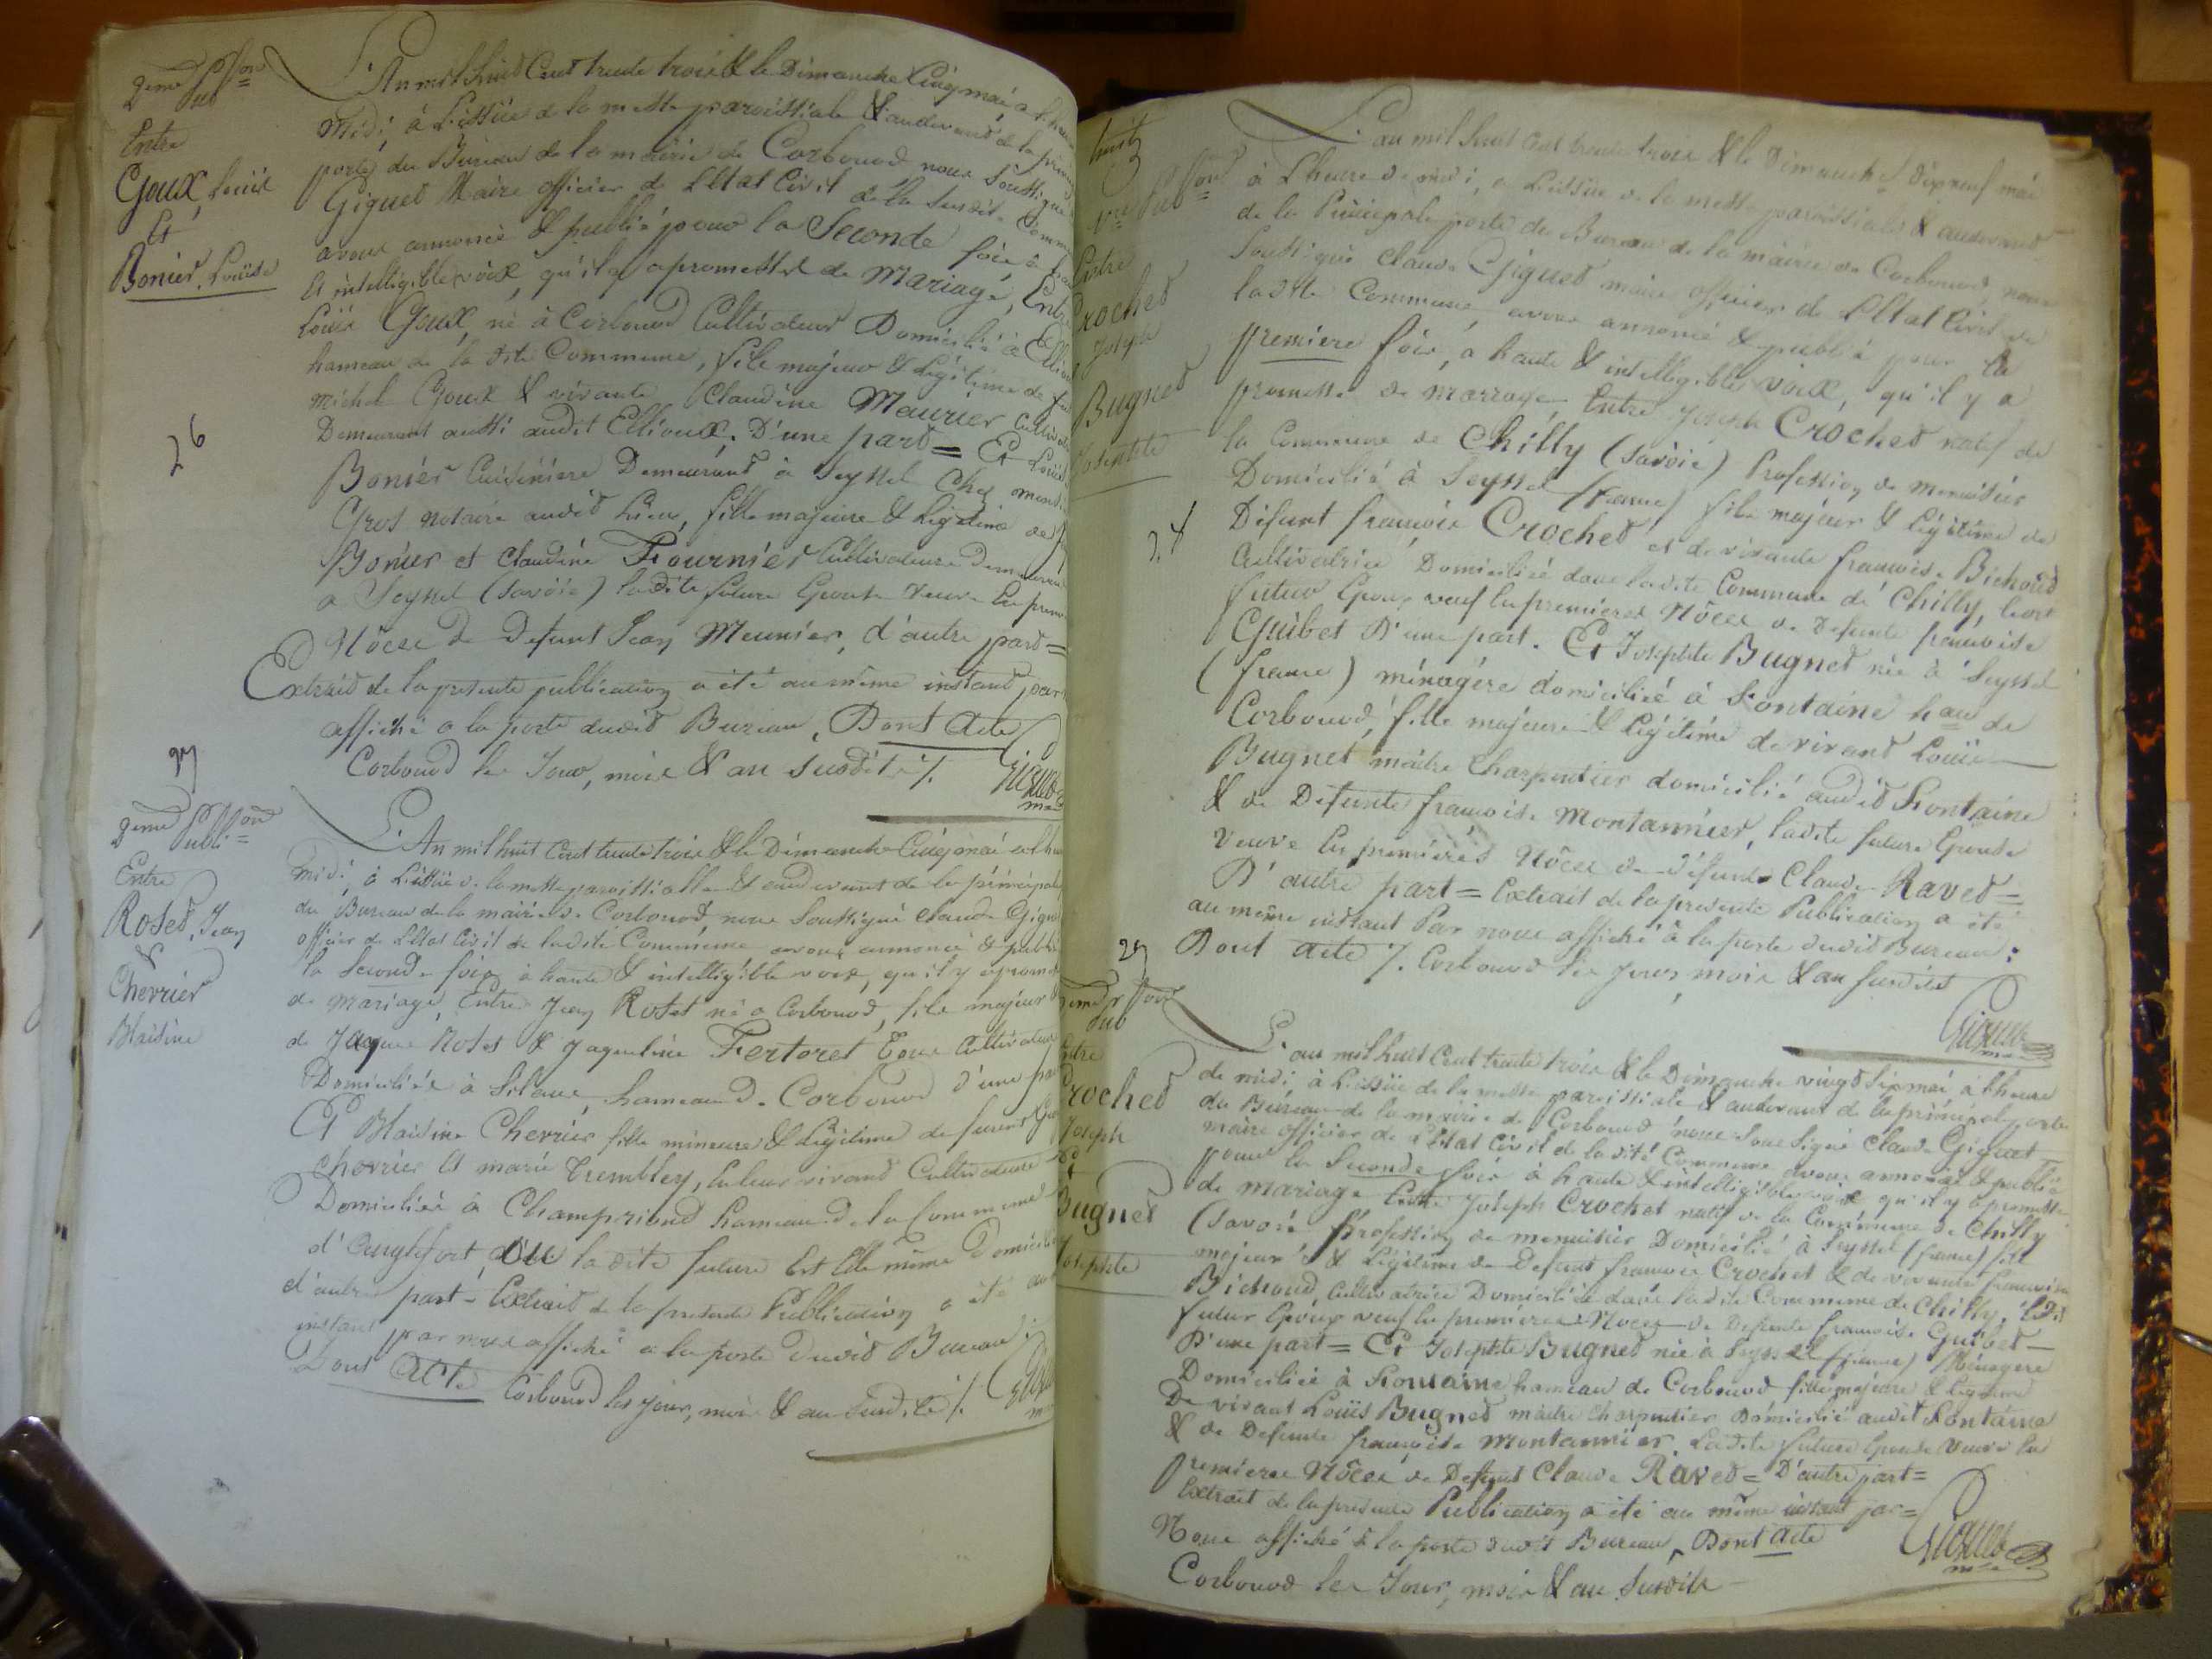 2eme Pub
Entre
Goux, Louis
Et
Bonier, Louise
26
L'An mil huit Cent trente trois & le Dimanche Cinq mai, a
Midi à L'issüe de la messe paroissiale & audevant de la
porte du Bureau de la mairie de Corbonod, nous soussigné
Giguet Maire officier de L'Etat Civil de la Susdite
avons annoncé & publié pour la Seconde fois à
et intelligible voix, qu'il y a promesse de Mariage, Entre
Louis Goux, né à Corbonod Cultivateur Domicilié à
hameau de la dite Commune, fils majeur & Légitime de
Michel Goux & vivante Claudine Meunier
Demeurant aussi audit Ellioux. D'une part = Et Louise
Bonier Cuisiniere Demeurant à Seyssel Chez
Gros Notaire audit Lieu, fille majeure & Légitime de
Bonier et Claudine Fournier Cultivateurs
a Seyssel (Savoie) ladite future Epouse Veuve En
Nôces de Defunt Jean Meunier, d'autre part =
Extrait de la presente publication a été au même instant par
affiché a la porte dudit Bureau, Dont Acte
Corbonod les Jour, mois & an Susdits /.
Giguet
27
2eme Publi
Entre
Roset, Jean
&
Chevrier
Blaisine
L'An mil huit Cent trente trois & le Dimanche Cinq mai
midi, à L'issüe de la messe paroissialle & audevant de la principale
du Bureau de la mairie de Corbonod, nous Soussigné Claude
officier de L'Etat Civil de ladite Commune avons annoncé &
la Seconde fois à haute & intelligible voix, qu'il y a
de Mariage, Entre Jean Roset né a Corbonod, fils majeur
de Jaque Roset & Jaqueline Fertoret Tous
Domiciliés à Silans, hameau de Corbonod d'une
Et Blaisine Chevrier fille mineure & Légitime de
Chevrier Et marie Trembley,
Domiciliée à Champriond hameau de la Commune
d'anglefort, où la dite future Est Elle même
d'autre part - Extrait de la presente Publication a été
instant par nous affiché a la porte dudit Bureau.
Dont Acte Corbonod les jour, mois & an Susdits /.
huit
Pub
Entre
Crochet
Joseph
Bugnet
Josephte
28
L'an mil huit cent trente trois & le Dimanche Dix neuf mai
à L'heure de midi, a L'issüe de la messe paroissiale & audevant
de la Principale porte du Bureau de la mairie de Corbonod, nous
Soussigné Claude Giguet maire officier de L'Etat Civil de
ladite Commune, avons annoncé & publié pour la
premiere fois, à haute & intelligible voix, qu'il y a
promesse de marriage, Entre Joseph Crochet natif de
la Commune de Chilly (Savoie) Profession de menuisier
Domicilié à Seyssel (france) fils majeur & Légitime de
Défunt françois Crochet et de vivante françoise Bichoud
Cultivatrice Domiciliée dans ladite Commune de Chilly,
futur Epoux veuf En premieres Nôces de Defunte françoise
Guibet D'une part. Et Josephte Bugnet née à Seyssel
(france) ménagére domiciliée à Fontaine hau de
Corbonod, fille majeure & Légitime de vivant Louis
Bugnet maitre Charpentier domicilié audit Fontaine
& de Defunte françoise Montannier, ladite future Epouse
Veuve En premières Nôces de défunt Claude Ravet =
D'autre part = Extrait de la presente Publication a été
au même instant Par nous affiché à la porte dudit Bureau :
Dont Acte /. Corbonod les jours, mois & an susdits
Giguet
29
2eme Pub
Entre
Crochet
Joseph
Et
Bugnet
Josephte
L'an mil huit Cent trente trois & le Dimanche vingt six mai à L'heure
de midi, à L'issüe de la messe paroissiale & audevant de la principale porte
du Bureau de la mairie de Corbonod nous Sous Signé Claude Giguet
maire officier de L'Etat Civil de ladite Commune avons annoncé & publié
pour la Seconde fois à haute & intelligible voix qu'il y a promesse
de mariage Entre Joseph Crochet natif de la Commune de Chilly
(Savoie, Profession de menuisier Domicilié à Seyssel (france) fils
majeur & Légitime de Defunt françois Crochet & de vivante françoise
Bichoud Cultivatrice Domiciliée dans ladite Commune de Chilly,
futur Epoux veuf En premieres Noces de Defunte françoise Guibet
D'une part = Et Josephte Bugnet née à Seyssel (france) Ménagere
Domiciliée à Fontaine hameau de Corbonod fille majeure & Légitime
De vivant Louis Bugnet maitre Charpentier Domicilié audit Fontaine
& de Defunte françoise Montannier. Ladite future Epouse Veuve En
premieres Nôces de Defunt Claude Ravet = D'autre part =
Extrait de la presente Publication a été au même instant par =
Nous affiché à la porte dudit Bureau, Dont Acte
Corbonod les Jour, mois & an Susdits
Giguet